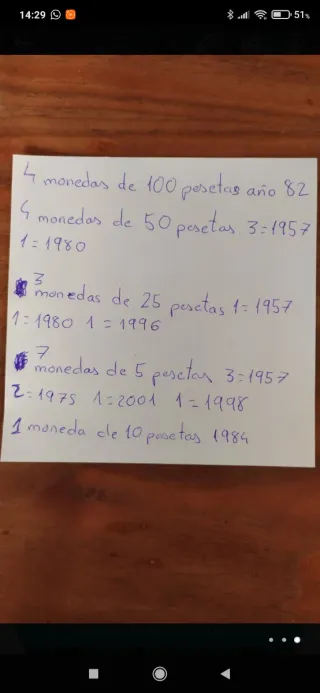 14:29
51%
4 monedas de 100 pesetas año 82
4 monedas de 50 pesetas 3=1957
1=1980
3
monedas de 25 pesetas 1=1957
1=1980 1=1996
7
monedas de 5 pesetas 3=1957
2=1975 1=2001 1=1998
1 moneda de 10 pesetas 1984